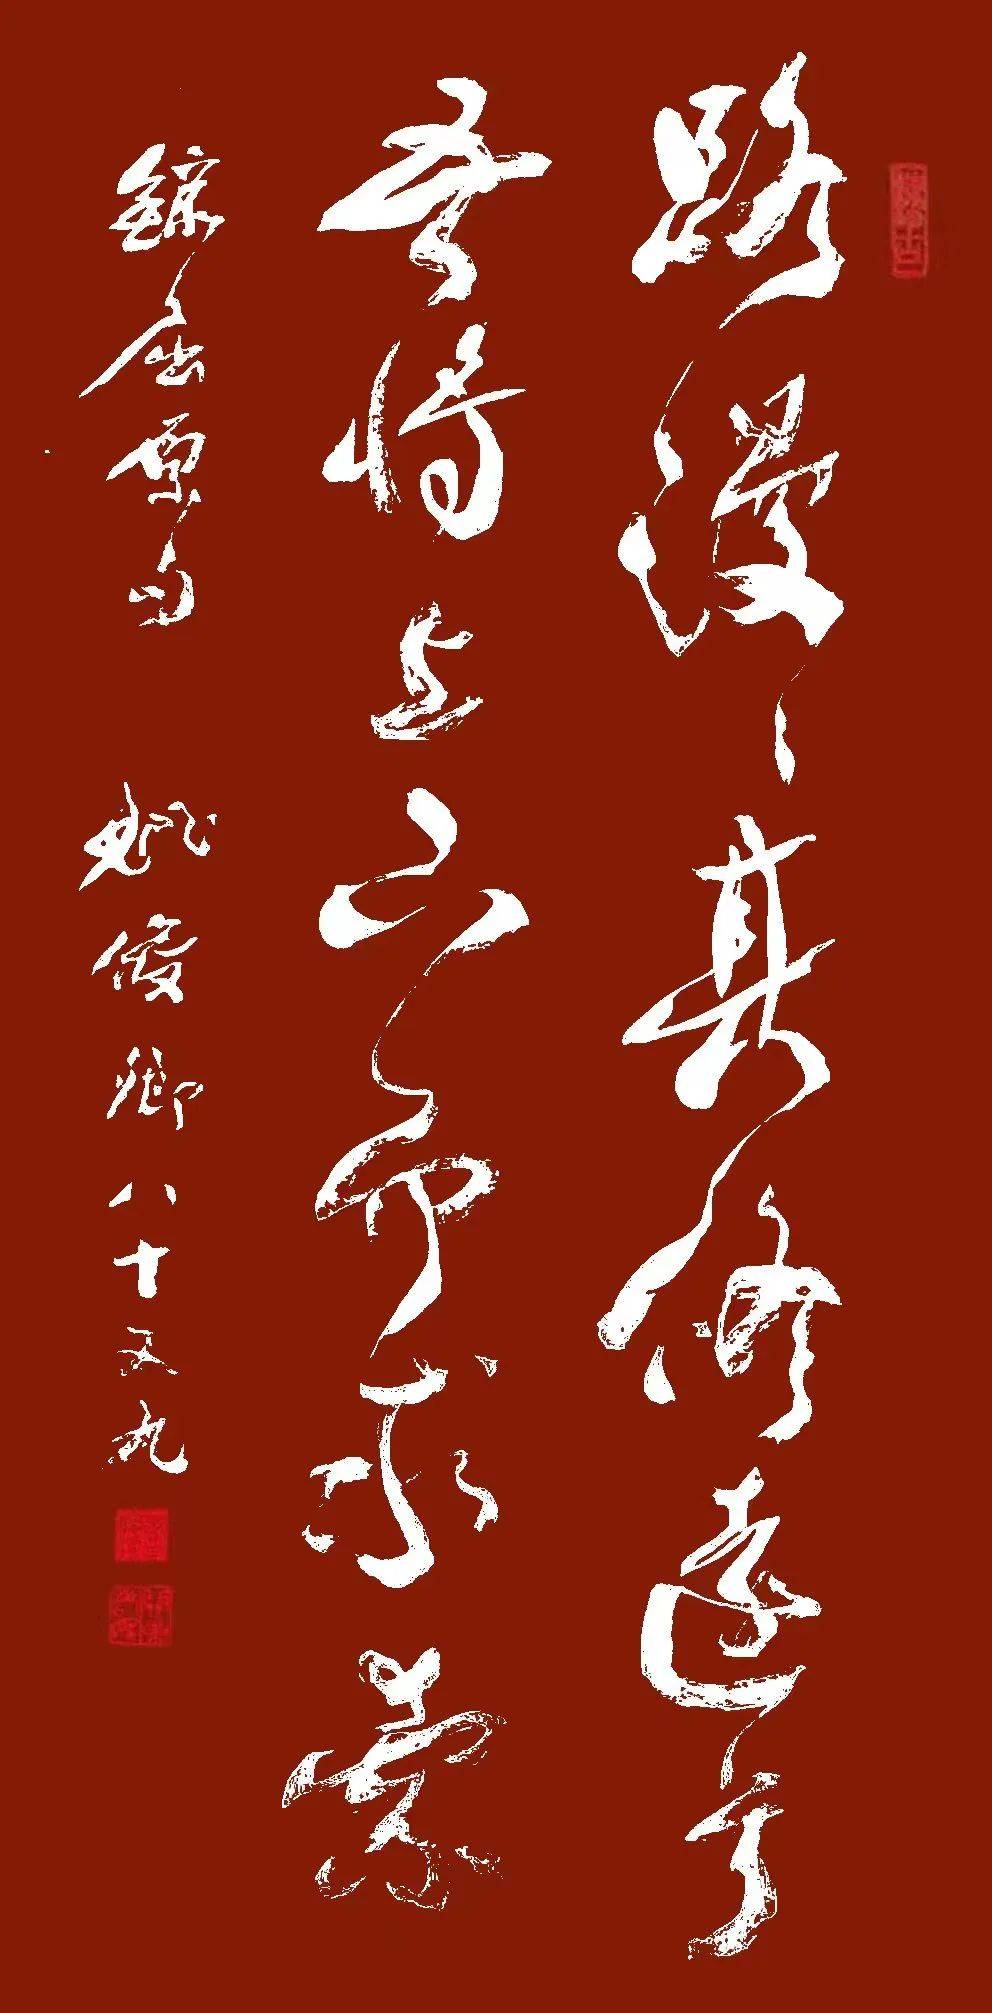 路漫漫其修远兮
吾将上下而求索
录屈原句 姚俊卿八十又九